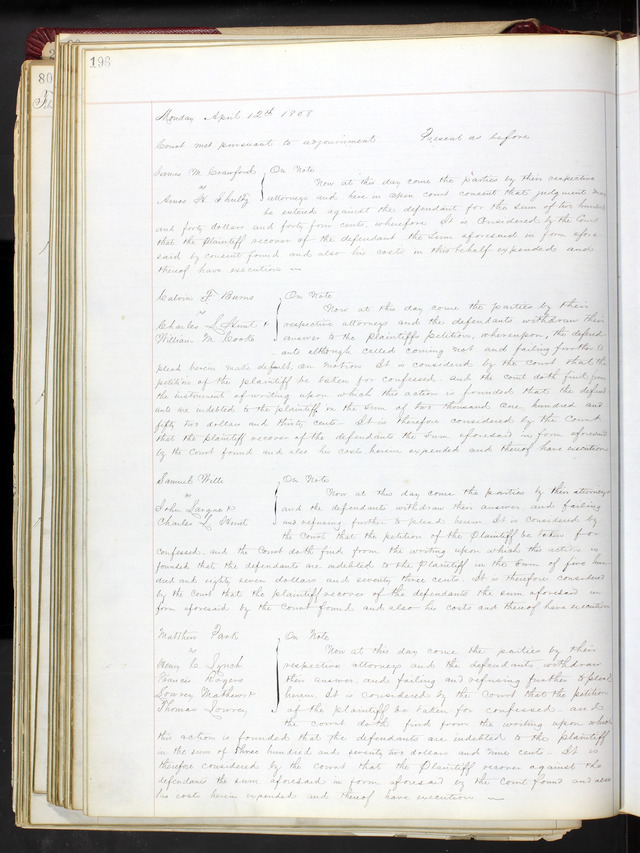 196
80
Monday April 12th 1858
Court met pursuant to adjournment Present as before
James M. Crawford On Note
vs Now at this day come the parties by their respective
Amos H. attorneys and here in open court consent that judgment may
be entered against the defendant for the sum of two hundred
and forty dollars and forty four cents, wherefore It is Considered by the Court
that the plaintiff recover of the defendant the sum aforesaid in form afore
said by consent found and also his costs in this behalf expended and
thereof have execution
Calvin F. Burns On Note
vs Now at this day come the parties by their
Charles L. Hunt & respective attorneys and the defendants withdraw their
William M. answer to the plaintiffs petition, whereupon, the defend
ants although called coming not and failing further to
plead herein make default, on motion It is considered by the court that the
petition of the plaintiff be taken for confessed and the court doth find from
the instrument of writing upon which this action is founded that the defend
ants are indebted to the plaintiff in the sum of two thousand one hundred and
fifty two dollars and thirty cents. It is therefore considered by the Court
that the plaintiff recover of the defendants the sum aforesaid in form aforesaid
by the Court found and also his costs herein expended and thereof have execution
Samuel Wells On Note
vs Now at this day come the parties by their attorneys
John & and the defendants withdraw their answer and failing
Charles L. Hunt and refusing further to plead herein. It is considered by
the Court that the petition of the Plaintiff be taken for
confessed and the Court doth find from the writing upon which this action is
founded that the defendants are indebted to the Plaintiff in the sum of five hun
dred and eighty seven dollars and seventy three cents. It is therefore considered
by the court that the plaintiff recover of the defendants the sum aforesaid in
form aforesaid by the Court found and also his costs and thereof have execution
Matthew Park On Note
vs Now at this day come the parties by their
Henry C. Lynch respective attorneys and the defendants withdraw
Francis Rogers their answer and failing and refusing further to plead
Lowrey Mathews & herein. It is considered by the Court that the petition
Thomas Lowrey of the plaintiff be taken for confessed and
the court doth find from the writing upon which
this action is founded that the defendants are indebted to the plaintiff
in the sum of three hundred and seventy two dollars and nine cents. It is
therefore considered by the court that the Plaintiff recover against the
defendants the sum aforesaid in form aforesaid by the Court found and also
his costs herein expended and thereof have execution